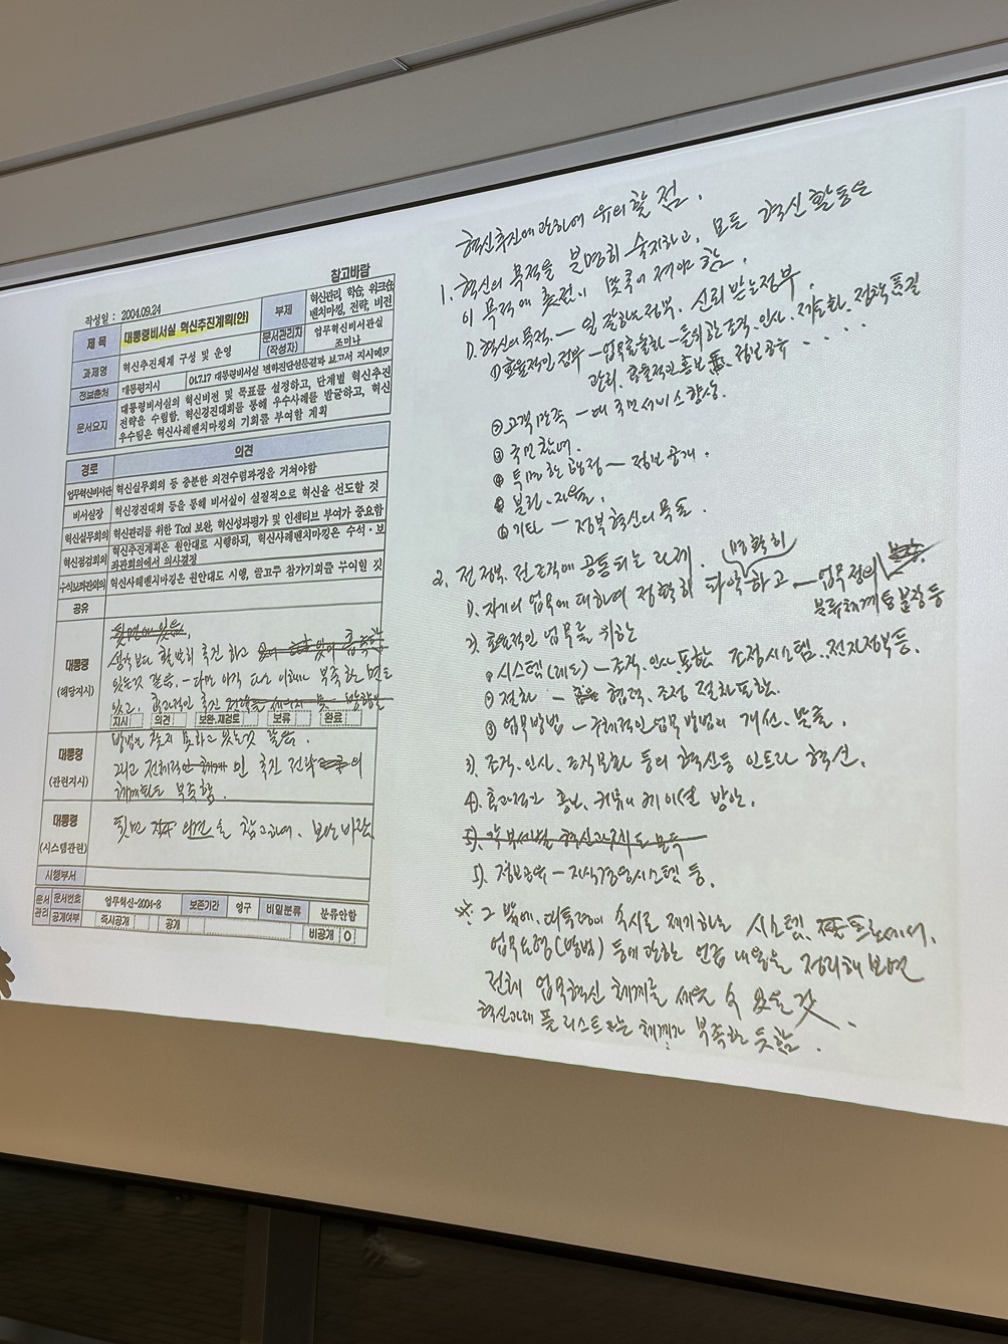 참고바람
작성일 : 2004.09.24
제 목 대통령비서실 혁신추진계획(안) 부제 혁신관리, 학습, 워크숍
벤치마킹, 전략, 비전
과제명 혁신추진체계 구성 및 운영 문서관리자 업무혁신비서관실
(작성자) 조미나
정보출처 대통령지시 04.7.17 대통령비서실 변화진단설문결과 보고서 지시메모
문서요지 대통령비서실의 혁신비전 및 목표를 설정하고, 단계별 혁신추진
전략을 수립함. 혁신경진대회를 통해 우수사례를 발굴하고, 혁신
우수팀은 혁신사례벤치마킹의 기회를 부여할 계획
경로 의견
업무혁신비서관 혁신실무회의 등 충분한 의견수렴과정을 거쳐야함
비서실장 혁신경진대회 등을 통해 비서실이 실질적으로 혁신을 선도할 것
혁신실무회의 혁신관리를 위한 Tool 보완, 혁신성과평가 및 인센티브 부여가 중요함
혁신점검회의 혁신추진계획은 원안대로 시행하되, 혁신사례벤치마킹은 수석·보
좌관회의에서 의사결정
수석보좌관회의 혁신사례벤치마킹은 원안대로 시행,
공유
대통령
(해당지시)
상당히 활발히 추진하고
있는것 같음. - 다만 아직 다소 이해가 부족한 면도
있고, 효과적인 추진
지시 의견 보완,재검토 보류 완료
대통령
(관련지시)
방법을 찾지 못하고 있는것 같음.
그리고 전체적인 추진 전략의
체계화도 부족함.
대통령
(시스템관련)
뒷면 의견을 참고하여, 보완바람
시행부서
문서
관리 문서번호 업무혁신-2004-8 보존기간 영구 비밀분류 분류안함
공개여부 즉시공개 공개 비공개 O
혁신추진에 관하여 유의할 점.
1. 혁신의 목적을 분명히 숙지하고, 모든 혁신 활동은
이 목적에 초점이 맞추어 져야 함.
1). 혁신의 목적. - 일 잘하는 정부. 신뢰 받는 정부.
① 효율적인 정부 - 업무효율화 - 조직. 인사. 정책품질
관리, 효율적인 홍보, 정보 공유 . . .
② 고객만족 - 대 국민서비스 향상.
③ 국민참여.
④ 투명한 행정 - 정보공개.
⑤ 분권. 자율.
⑥ 기타 - 정부혁신의 목표.
2. 전 정부. 전 조직에 공통되는 과제.
1). 자기의 업무에 대하여 정확히 명확히 파악하고 - 업무정의
분류체계 등 분장 등
2). 효율적인 업무를 위한
① 시스템(제도) - 조직. 인사 포함 조정시스템. 전자정부등.
② 절차 - 협력. 조정 절차포함.
③ 업무방법 - 구체적인 업무방법의 개선. 발굴.
3). 조직. 인사. 조직문화 등의 혁신등 인프라 혁신.
4). 효과적인 홍보. 커뮤니케이션 방안.
5). 정보공유 - 지식경영시스템 등.
※. 그 밖에. 대통령이 수시로 제기하는 시스템,
업무요령(방법) 등에 관한 언급 내용을 정리해 보면
전체 업무혁신 체계를 세울 수 있을 것.
혁신과제 풀 리스트 체계가 부족한 듯함.